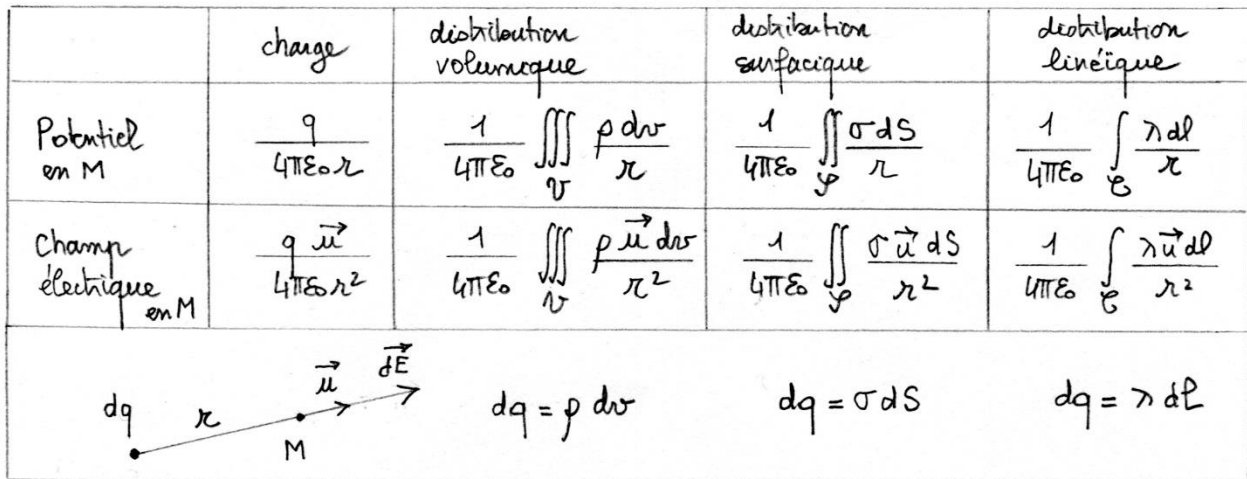 charge
distribution
volumique
distribution
surfacique
distribution
linéïque
Potentiel
en M
q / 4πε₀r
1/4πε₀ ∭_V ρ dv / r
1/4πε₀ ∬_S σ dS / r
1/4πε₀ ∫_C λ dl / r
Champ
électrique
en M
q u⃗ / 4πε₀r²
1/4πε₀ ∭_V ρ u⃗ dv / r²
1/4πε₀ ∬_S σ u⃗ dS / r²
1/4πε₀ ∫_C λ u⃗ dl / r²
dq
r
M
u⃗
dE⃗
dq = ρ dv
dq = σ dS
dq = λ dl